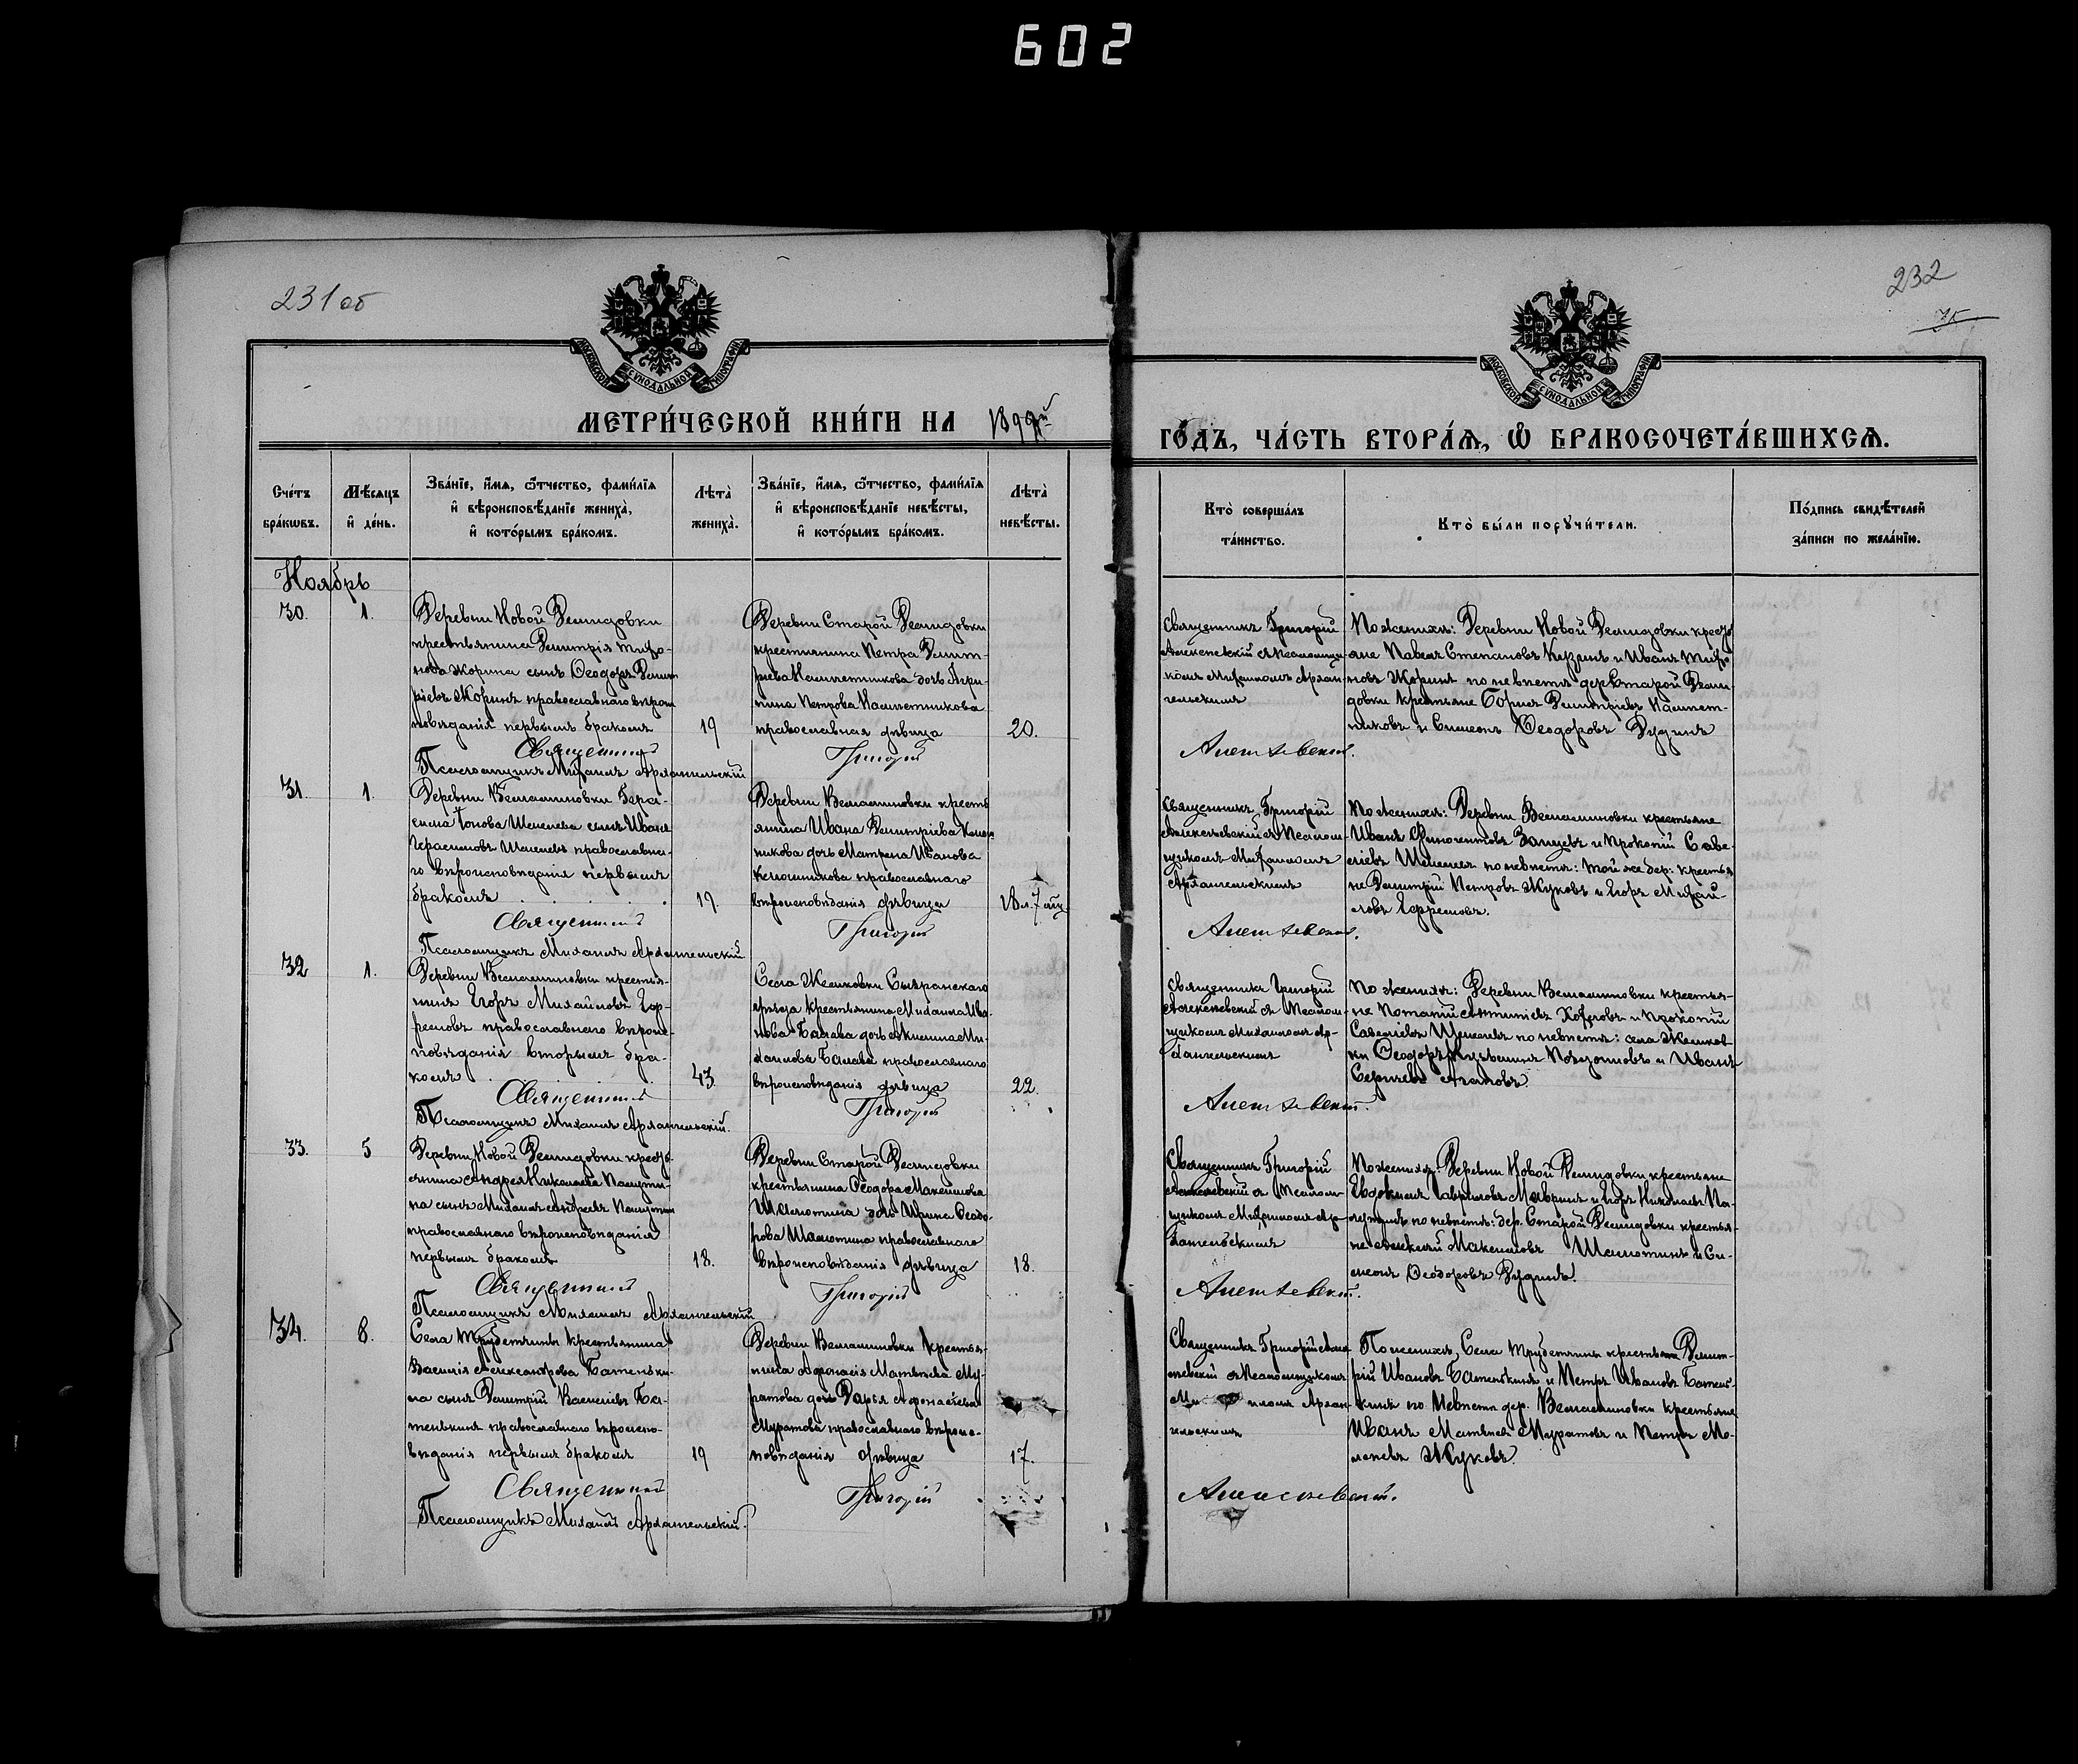 602
231 об
232
МОСКОВСКОЙ СУНОДАЛЬНОЙ ТИПОГРАФІИ
МОСКОВСКОЙ СУНОДАЛЬНОЙ ТИПОГРАФІИ
МЕТРИ́ЧЕСКОЙ КНИ́ГИ НА 1899й
ГО́ДЪ, ЧА́СТЬ ВТОРА́Ѧ, Ѽ БРАКОСОЧЕТА́ВШИХСѦ.
Сче́тъ бра́кѡвъ.
Мѣ́сяцъ и҆ де́нь.
Зва́нїе, и҆́мѧ, ѻ҆́тчество, фами́лїѧ
и҆ вѣроисповѣ́данїе жениха̀,
и҆ кото́рымъ бра́комъ.
Лѣта̀ жениха̀.
Зва́нїе, и҆́мѧ, ѻ҆́тчество, фами́лїѧ
и҆ вѣроисповѣ́данїе невѣ́сты,
и҆ кото́рымъ бра́комъ.
Лѣта̀ невѣ́сты.
Кто̀ соверша́лъ та́инство.
Кто̀ бы́ли порꙋчи́тели.
По́дпись свидѣ́телей за́писи по жела́нїю.
Ноябрь
30. 1.
Деревни Новой Демидовки
крестьянина Димитрія Тихо-
нова Жорина сынъ Ѳеодоръ Димит
ріевъ Жоринъ православнаго вѣроис
повѣданія первымъ бракомъ
19
Деревни Старой Демидовки
крестьянина Петра Димит-
ріева дочь Агри-
пина Петрова
православная дѣвица
20.
Священникъ Григорій
Алексѣевскій съ Псаломщи-
комъ Михаиломъ Архан-
гельскимъ
По женихѣ: Деревни Новой Демидовки кресть
яне Павелъ Степановъ и Иванъ Тихо
новъ Жоринъ по невѣстѣ дер. Старой Деми-
довки крестьяне Борисъ Димитріевъ
и Симеонъ Ѳеодоровъ Дудинъ
Священникъ Григорій Алексѣевскій.
Псаломщикъ Михаилъ Архангельскій
31. 1.
Деревни Гера-
сима Іонова Шепелева сынъ Иванъ
Герасимовъ Шепелевъ православна-
го вѣроисповѣданія первымъ
бракомъ
19.
Деревни кресть
янина Ивана Димитріева
дочь Матрена Иванова
православнаго
вѣроисповѣданія дѣвица
18 л. 7 мѣс
Священникъ Григорій
Алексѣевскій съ Псалом-
щикомъ Михаиломъ
Архангельскимъ
По женихѣ: Деревни крестьяне
Иванъ Зайцевъ и Прокопій Саве-
ліевъ Шепелевъ по невѣстѣ: той же дер: крестья
не Димитрій Петровъ Жуковъ и Егоръ Михай-
ловъ Ефремовъ.
Священникъ Григорій Алексѣевскій.
Псаломщикъ Михаилъ Архангельскій
32 1.
Деревни крестья-
нинъ Егоръ Михайловъ Еф-
ремовъ православнаго вѣроис-
повѣданія вторымъ бра-
комъ
43.
Села Жемковки Сызранскаго
уѣзда Крестьянина Михаила Ива-
нова дочь Акилина Ми-
хаилова православнаго
вѣроисповѣданія дѣвица
22.
Священникъ Григорій
Алексѣевскій съ Псалом-
щикомъ Михаиломъ Ар-
хангельскимъ
По женихѣ: Деревни крестья-
не и Прокопій
Савеліевъ Шепелевъ по невѣстѣ: села Жемков-
ки Ѳеодоръ и Иванъ
Сергѣевъ Агаповъ
Священникъ Григорій Алексѣевскій.
Псаломщикъ Михаилъ Архангельскій.
33. 5
Деревни Новой Демидовки кресть
янина Андрея Николаева
на сынъ Михаилъ Андреевъ
православнаго вѣроисповѣданія
первымъ бракомъ
18.
Деревни Старой Демидовки
крестьянина Ѳеодора Максимова
дочь Ирина Ѳеодо-
рова православнаго
вѣроисповѣданія дѣвица
18.
Священникъ Григорій
Алексѣевскій съ Псалом-
щикомъ Михаиломъ Ар-
хангельскимъ
По женихѣ: Деревни Новой Демидовки крестьяне
Евдокимъ Гавриловъ и Егоръ Николаевъ
по невѣстѣ: дер. Старой Демидовки крестья-
не Алексѣй Максимовъ и Си-
меонъ Ѳеодоровъ Дудинъ.
Священникъ Григорій Алексѣевскій.
Псаломщикъ Михаилъ Архангельскій
34. 8.
Села Трубетчины Крестьянина
Василія Александрова Батеньки-
на сынъ Димитрій Василіевъ Ба-
тенькинъ православнаго вѣроиспо-
вѣданія первымъ бракомъ
19
Деревни крестья-
нина Афонасія Матвѣева Му-
ратова дочь Дарья Афонасіева
Муратова православнаго вѣроис-
повѣданія дѣвица
17.
Священникъ Григорій Алек-
сѣевскій съ Псаломщикомъ
Ми иломъ Архан-
По женихѣ, Села Трубетчины крестьяне Димит-
рій Ивановъ Батенькинъ и Петръ Ивановъ Батень-
кинъ по Невѣстѣ дер. крестьяне
Иванъ Матвѣевъ Муратовъ и Петръ Мо-
Жуковъ.
Священникъ Григорій Алексѣевскій.
Псаломщикъ Михаилъ Архангельскій.